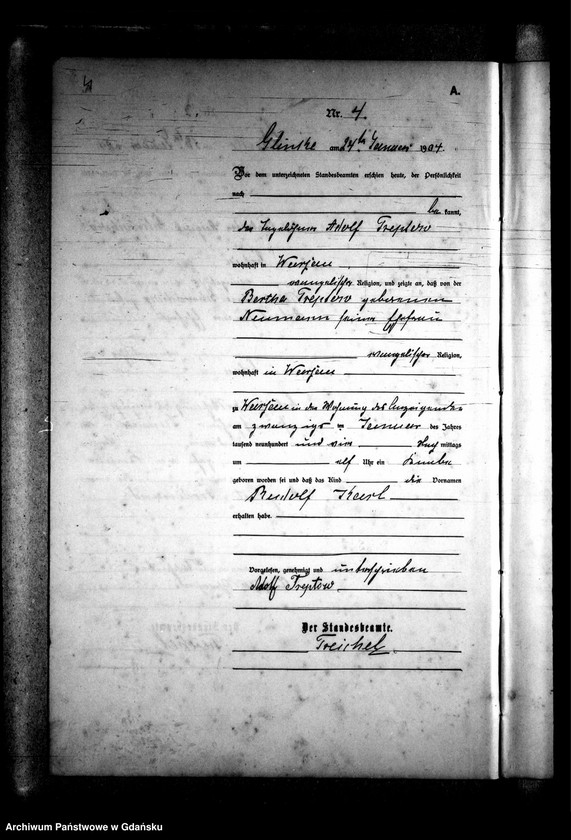 4
A.
Nr. 4.
Glinke am 24 ten Januar 1904.
Vor dem unterzeichneten Standesbeamten erschien heute, der Persönlichkeit
nach
be kannt,
der Adolf Treptow
wohnhaft in
evangelischer Religion, und zeigte an, daß von der
Bertha Treptow geborenen
Neumann seiner Ehefrau
evangelischer Religion,
wohnhaft in
zu in der Wohnung des Anzeigenden
am zwanzigs ten Januar des Jahres
tausend neunhundert und vier Nach mittags
um elf Uhr ein Knabe
geboren worden sei und daß das Kind die Vornamen
Rudolf Karl
erhalten habe.
Vorgelesen, genehmigt und unterschrieben
Adolf Treptow
Der Standesbeamte.
Treichel
Archiwum Państwowe w Gdańsku